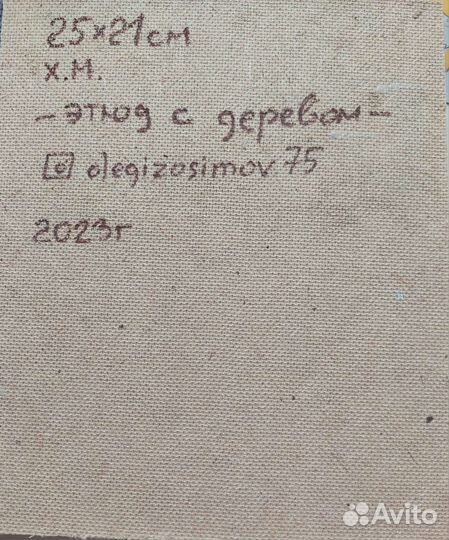 25×21см
х.м.
- этюд с деревом -
olegizosimov75
2023г
Avito